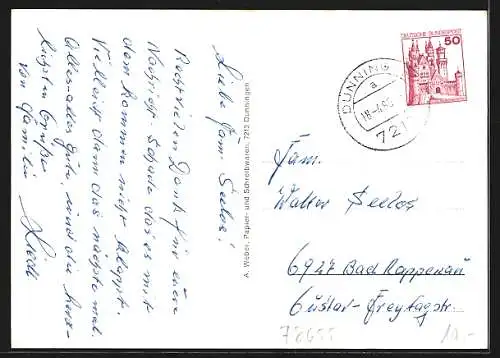 Liebe Fam. Seelos!
Recht vielen Dank für eure
Nachricht. Schade das es mit
dem Kommen nicht klappt.
Vielleicht dann das nächste mal.
Alles alles Gute, und die herz-
lichsten Grüße
von Familie
A. Weber, Papier- und Schreibwaren, 7213 Dunningen
DEUTSCHE BUNDESPOST
50
DUNNING
a
721
Fam.
Walter Seelos
6927 Bad Rappenau
Gustav-Freytagstr.